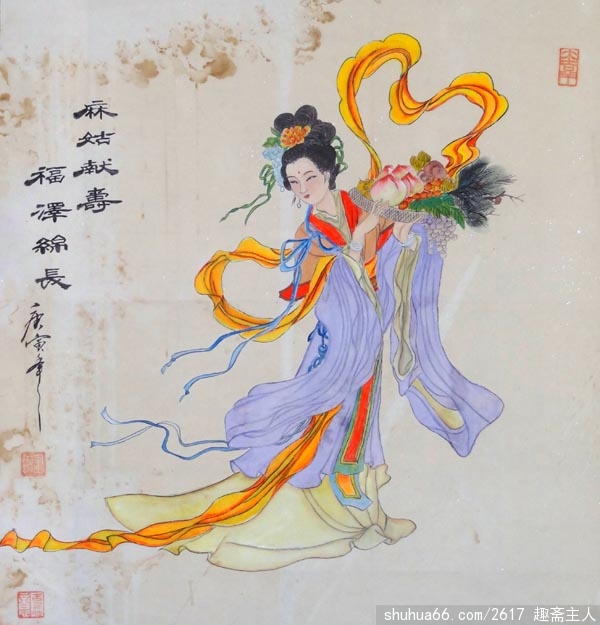 麻姑献壽
福澤綿長
庚寅年
shuhua66.com/2617 趣斋主人